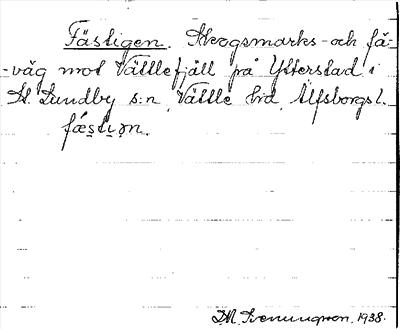 Fästigen. Skogsmarks- och fä-
-väg mot Vättlefjäll på Ytterstad i
St. Lundby s:n, Vättle hd, Älfsborgs l.
fǽstiɡn.
D.M. Svenungson. 1938.